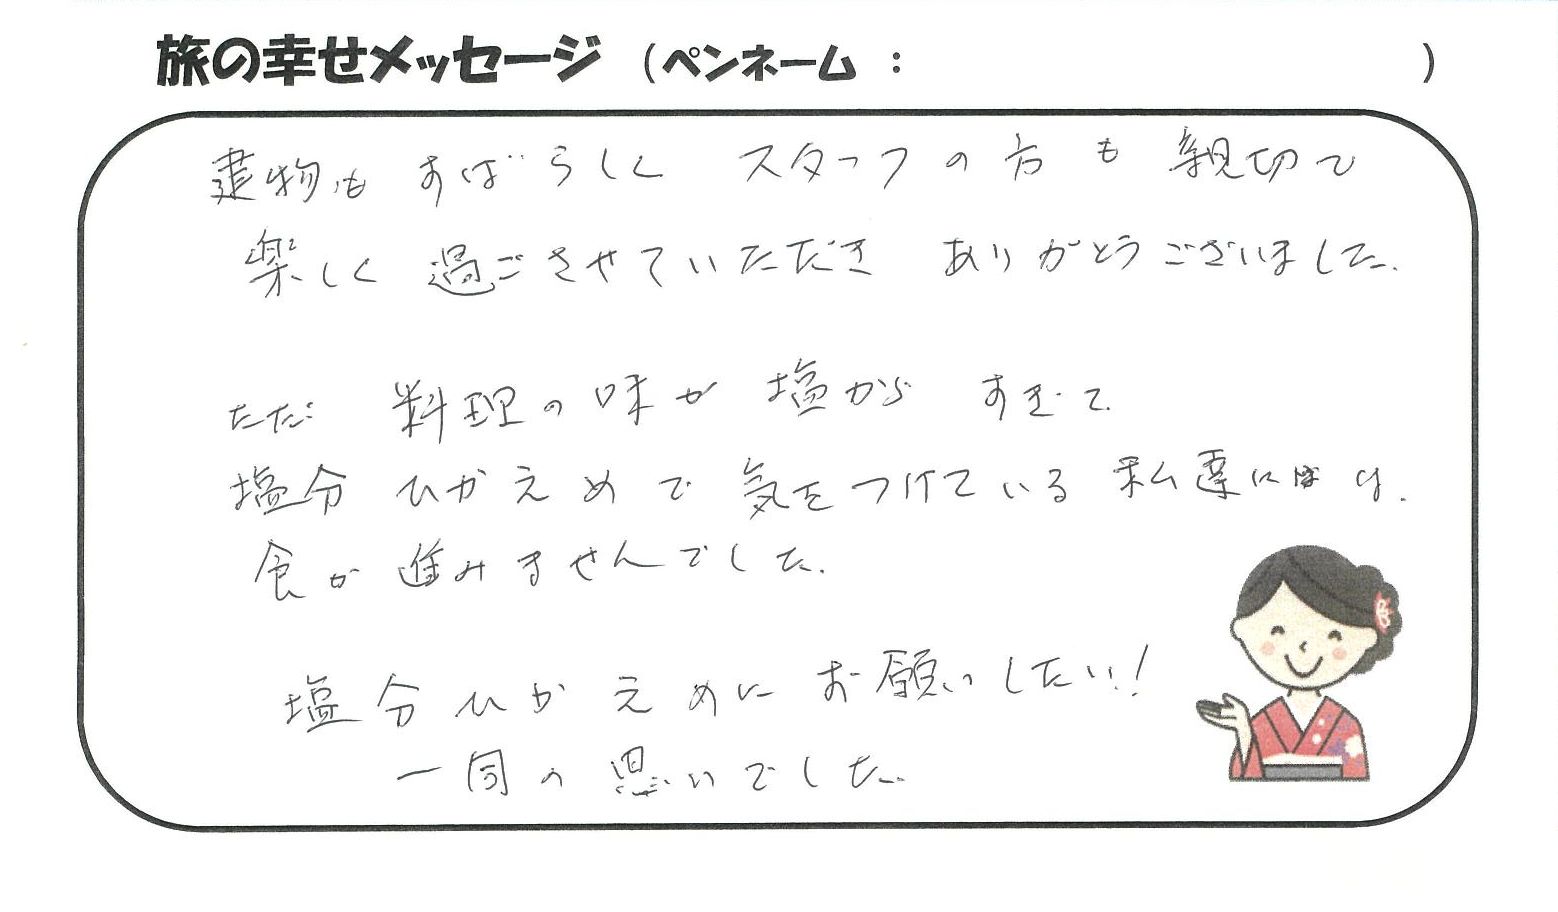 旅の幸せメッセージ （ペンネーム： ）
建物も すばらしく スタッフの方も 親切で
楽しく 過ごさせていただき ありがとうございました.
ただ 料理の味が 塩から すぎて
塩分 ひかえめで 気をつけている 私達には.
食が 進みませんでした.
塩分 ひかえめに お願いしたい!
一同の思いでした.